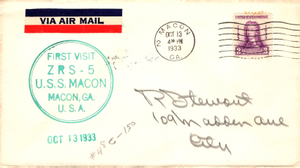 VIA AIR MAIL
MACON
OCT 13
1933
GA.
FIRST VISIT
ZRS-5
U.S.S. MACON
MACON, GA.
U.S.A.
OCT 13 1933
R Stewart
109
City